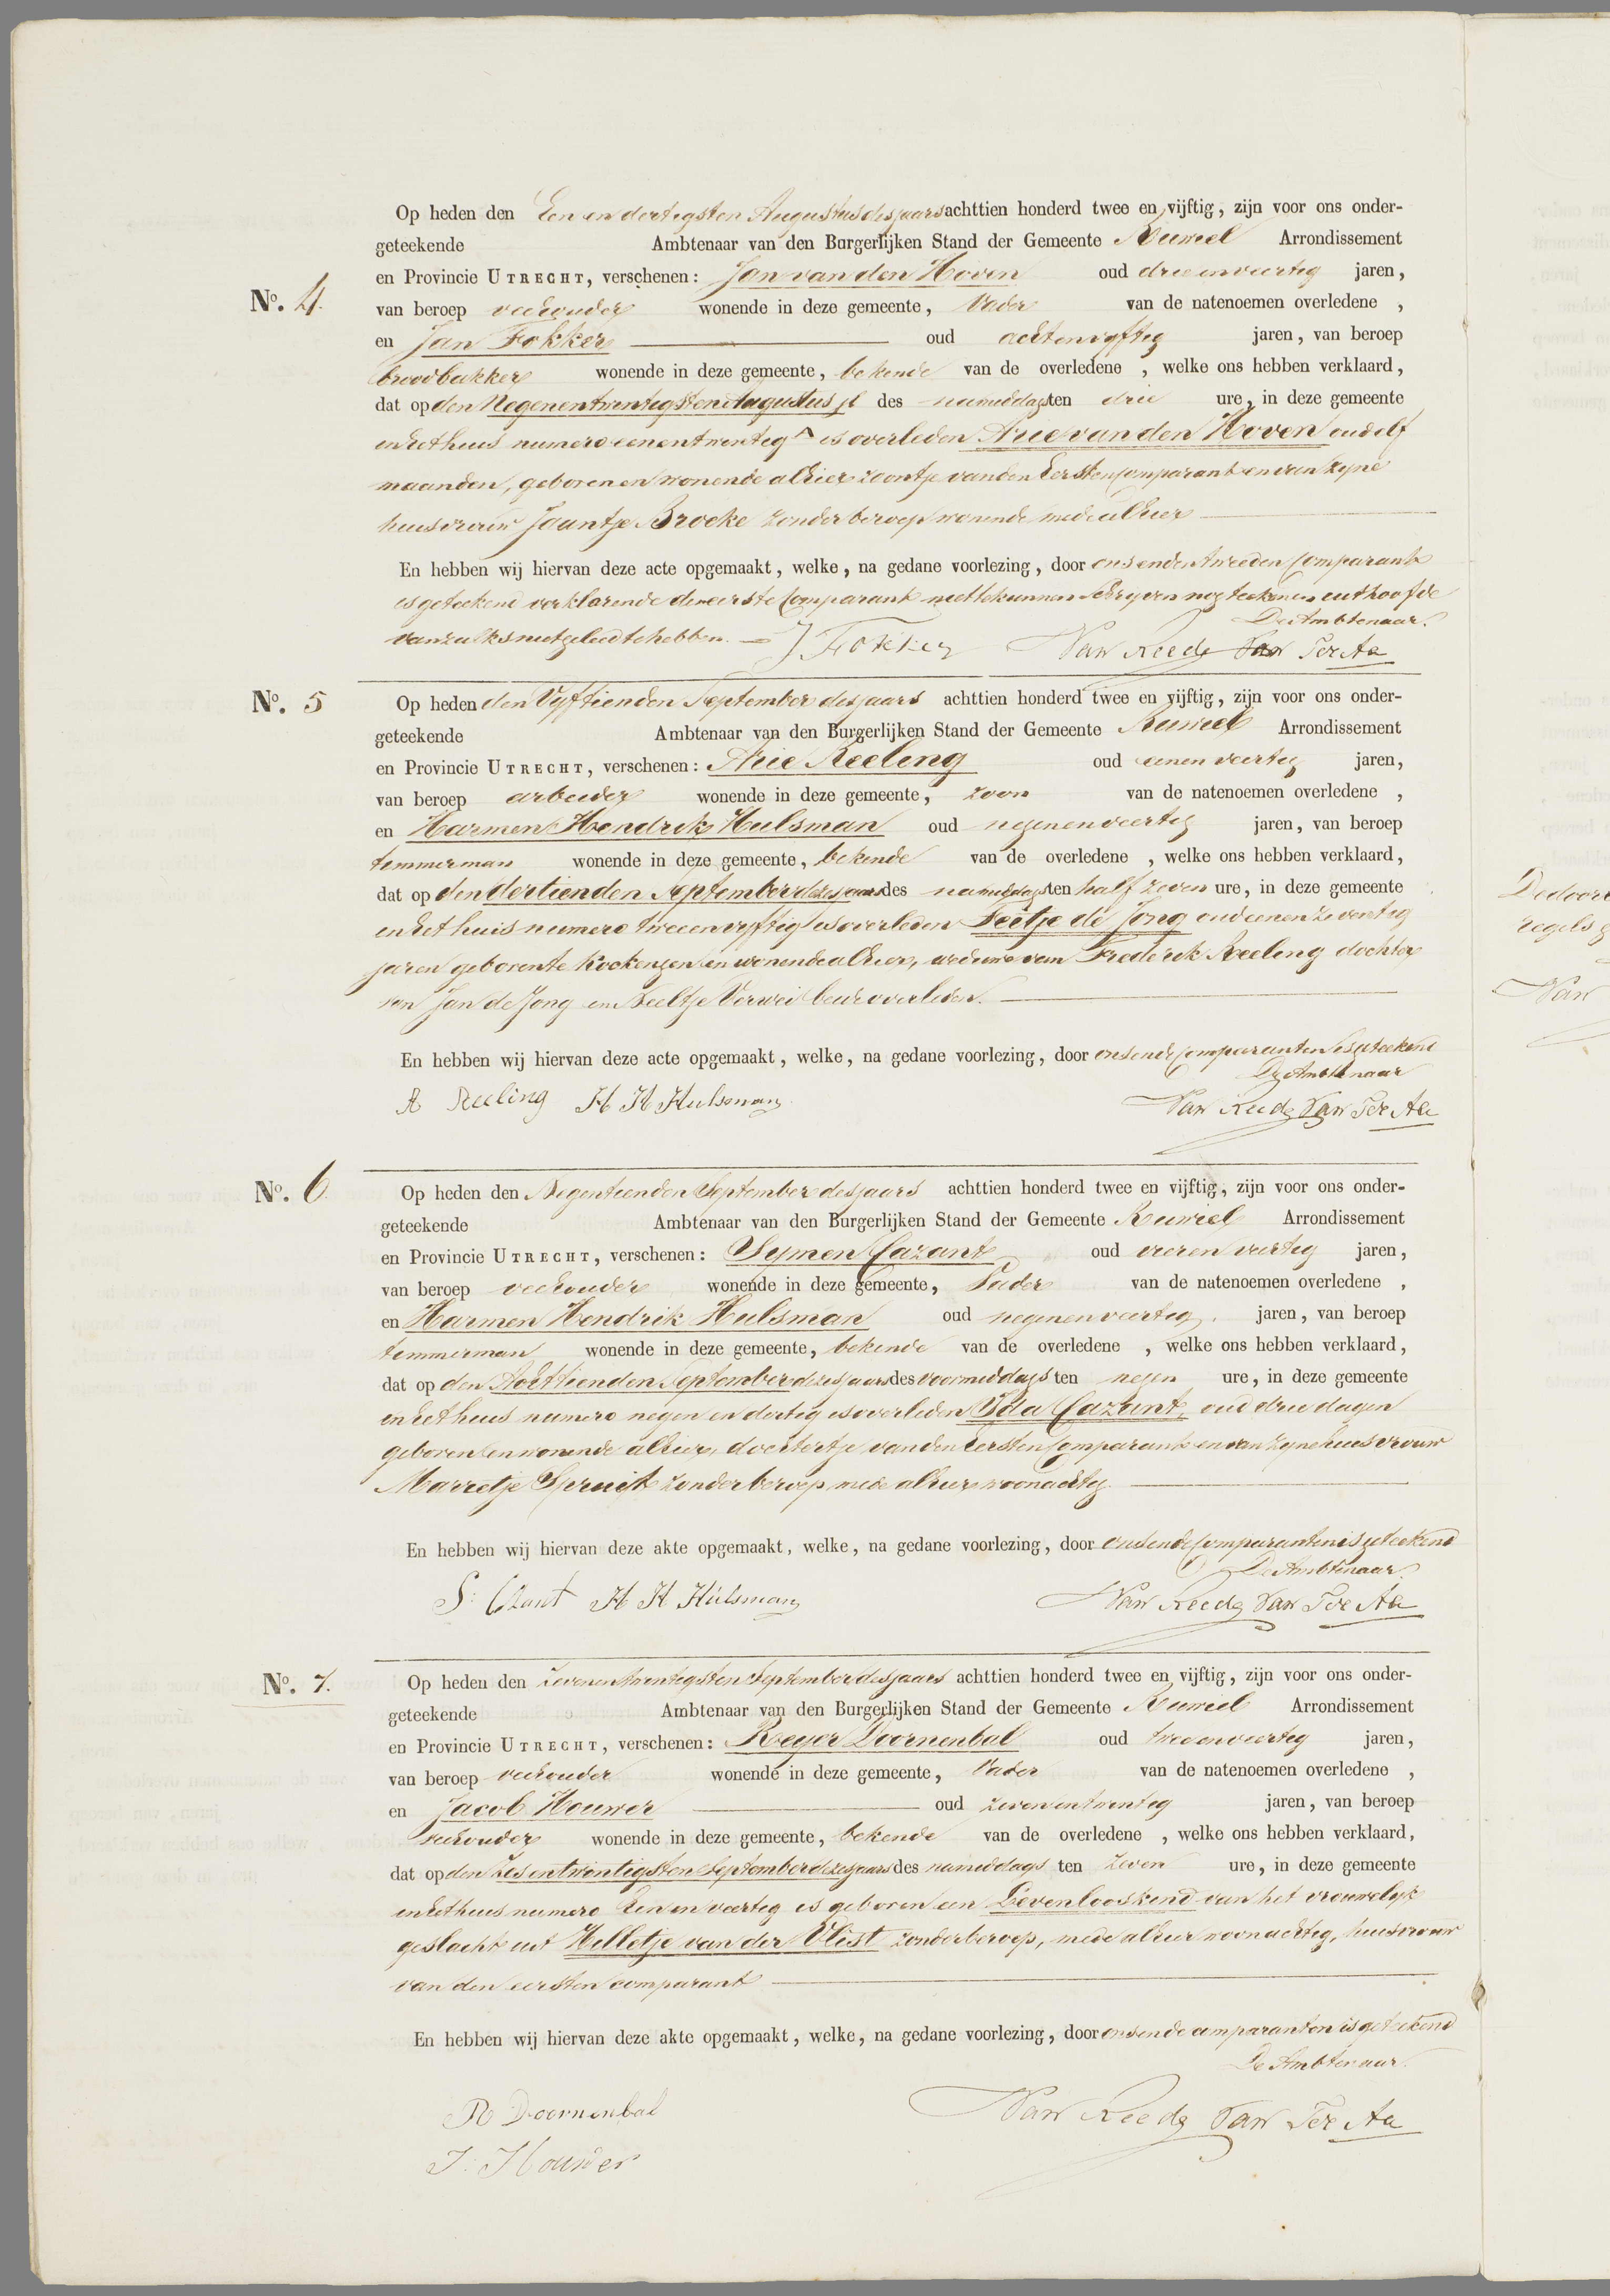 Op heden den Een en dertigsten Augustus des jaars achttien honderd twee en vijftig, zijn voor ons onder-
geteekende Ambtenaar van den Burgerlijken Stand der Gemeente Ruwiel Arrondissement
en Provincie UTRECHT, verschenen: Jan van den Hoven oud drie en veertig jaren,
No. 4. van beroep veehouder wonende in deze gemeente, Vader van de natenoemen overledene ,
en Jan Fokker oud achtenvyftig jaren, van beroep
broodbakker wonende in deze gemeente, bekende van de overledene , welke ons hebben verklaard,
dat op den Negenentwentigsten Augustus jl des namiddags ten drie ure, in deze gemeente
in het huis numero eenentwentig A is overleden Arie van den Hoven oud elf
maanden, geboren en wonende alhier zoontje van den Eersten Comparant en van zyne
huisvrouw Jaantje Brocke zonder beroep wonende mede alhier
En hebben wij hiervan deze acte opgemaakt, welke, na gedane voorlezing, door ons en den tweeden Comparant
is geteekend verklarende de eerste Comparant niet te kunnen schryven nog teekenen uit hoofde
van zulks niet geleerd te hebben. De Ambtenaar.
J Fokker Van Reede Van Ter Aa
No. 5 Op heden den Vyftienden September des jaars achttien honderd twee en vijftig, zijn voor ons onder-
geteekende Ambtenaar van den Burgerlijken Stand der Gemeente Ruwiel Arrondissement
en Provincie UTRECHT, verschenen: Arie Reeling oud eenen veertig jaren,
van beroep arbeider wonende in deze gemeente, zoon van de natenoemen overledene ,
en Harmen Hendrik Hulsman oud negenenveertig jaren, van beroep
timmerman wonende in deze gemeente, bekende van de overledene , welke ons hebben verklaard,
dat op den dertienden September dezes jaars des namiddags ten half zeven ure, in deze gemeente
in het huis numero tweeenvyftig is overleden Feetje de Jong oud eenen zeventig
jaren geboren te Kockengen en wonende alhier, weduwe van Frederik Reeling dochter
van Jan de Jong en Neeltje Verwei beide overleden.
En hebben wij hiervan deze acte opgemaakt, welke, na gedane voorlezing, door ons en de Comparanten is geteekend
De Ambtenaar
A Reeling H H Hulsman Van Reede Van Ter Aa
No. 6. Op heden den Negentienden September des jaars achttien honderd twee en vijftig, zijn voor ons onder-
geteekende Ambtenaar van den Burgerlijken Stand der Gemeente Ruwiel Arrondissement
en Provincie UTRECHT, verschenen: Symen Cazant oud vieren veertig jaren,
van beroep veehouder wonende in deze gemeente, Vader van de natenoemen overledene ,
en Harmen Hendrik Hulsman oud negenenveertig jaren, van beroep
timmerman wonende in deze gemeente, bekende van de overledene , welke ons hebben verklaard,
dat op den Achttienden September dezes jaars des voormiddags ten negen ure, in deze gemeente
in het huis numero negen en dertig is overleden Yda Cazant, oud drie dagen
geboren en wonende alhier, dochtertje van den Eersten Comparant en van zyne huisvrouw
Marretje Spruit zonder beroep mede alhier woonachtig.
En hebben wij hiervan deze akte opgemaakt, welke, na gedane voorlezing, door ons en de Comparanten is geteekend
De Ambtenaar.
S: H H Hulsman Van Reede Van Ter Aa
No. 7. Op heden den zevenentwentigsten September des jaars achttien honderd twee en vijftig, zijn voor ons onder-
geteekende Ambtenaar van den Burgerlijken Stand der Gemeente Ruwiel Arrondissement
en Provincie UTRECHT, verschenen: Reyer Doornenbal oud tweeenveertig jaren,
van beroep veehouder wonende in deze gemeente, Vader van de natenoemen overledene ,
en Jacob Houwer oud zevenentwentig jaren, van beroep
veehouder wonende in deze gemeente, bekende van de overledene , welke ons hebben verklaard,
dat op den zesentwentigsten September dezes jaars des namiddags ten zeven ure, in deze gemeente
in het huis numero Een en veertig is geboren een Levenloos kind van het vrouwelyk
geslacht uit Hilletje van der Vlist zonder beroep, mede alhier woonachtig, huisvrouw
van den eersten comparant
En hebben wij hiervan deze akte opgemaakt, welke, na gedane voorlezing, door ons en de comparanten is geteekend
De Ambtenaar.
R Doornenbal Van Reede Van Ter Aa
J: Houwer